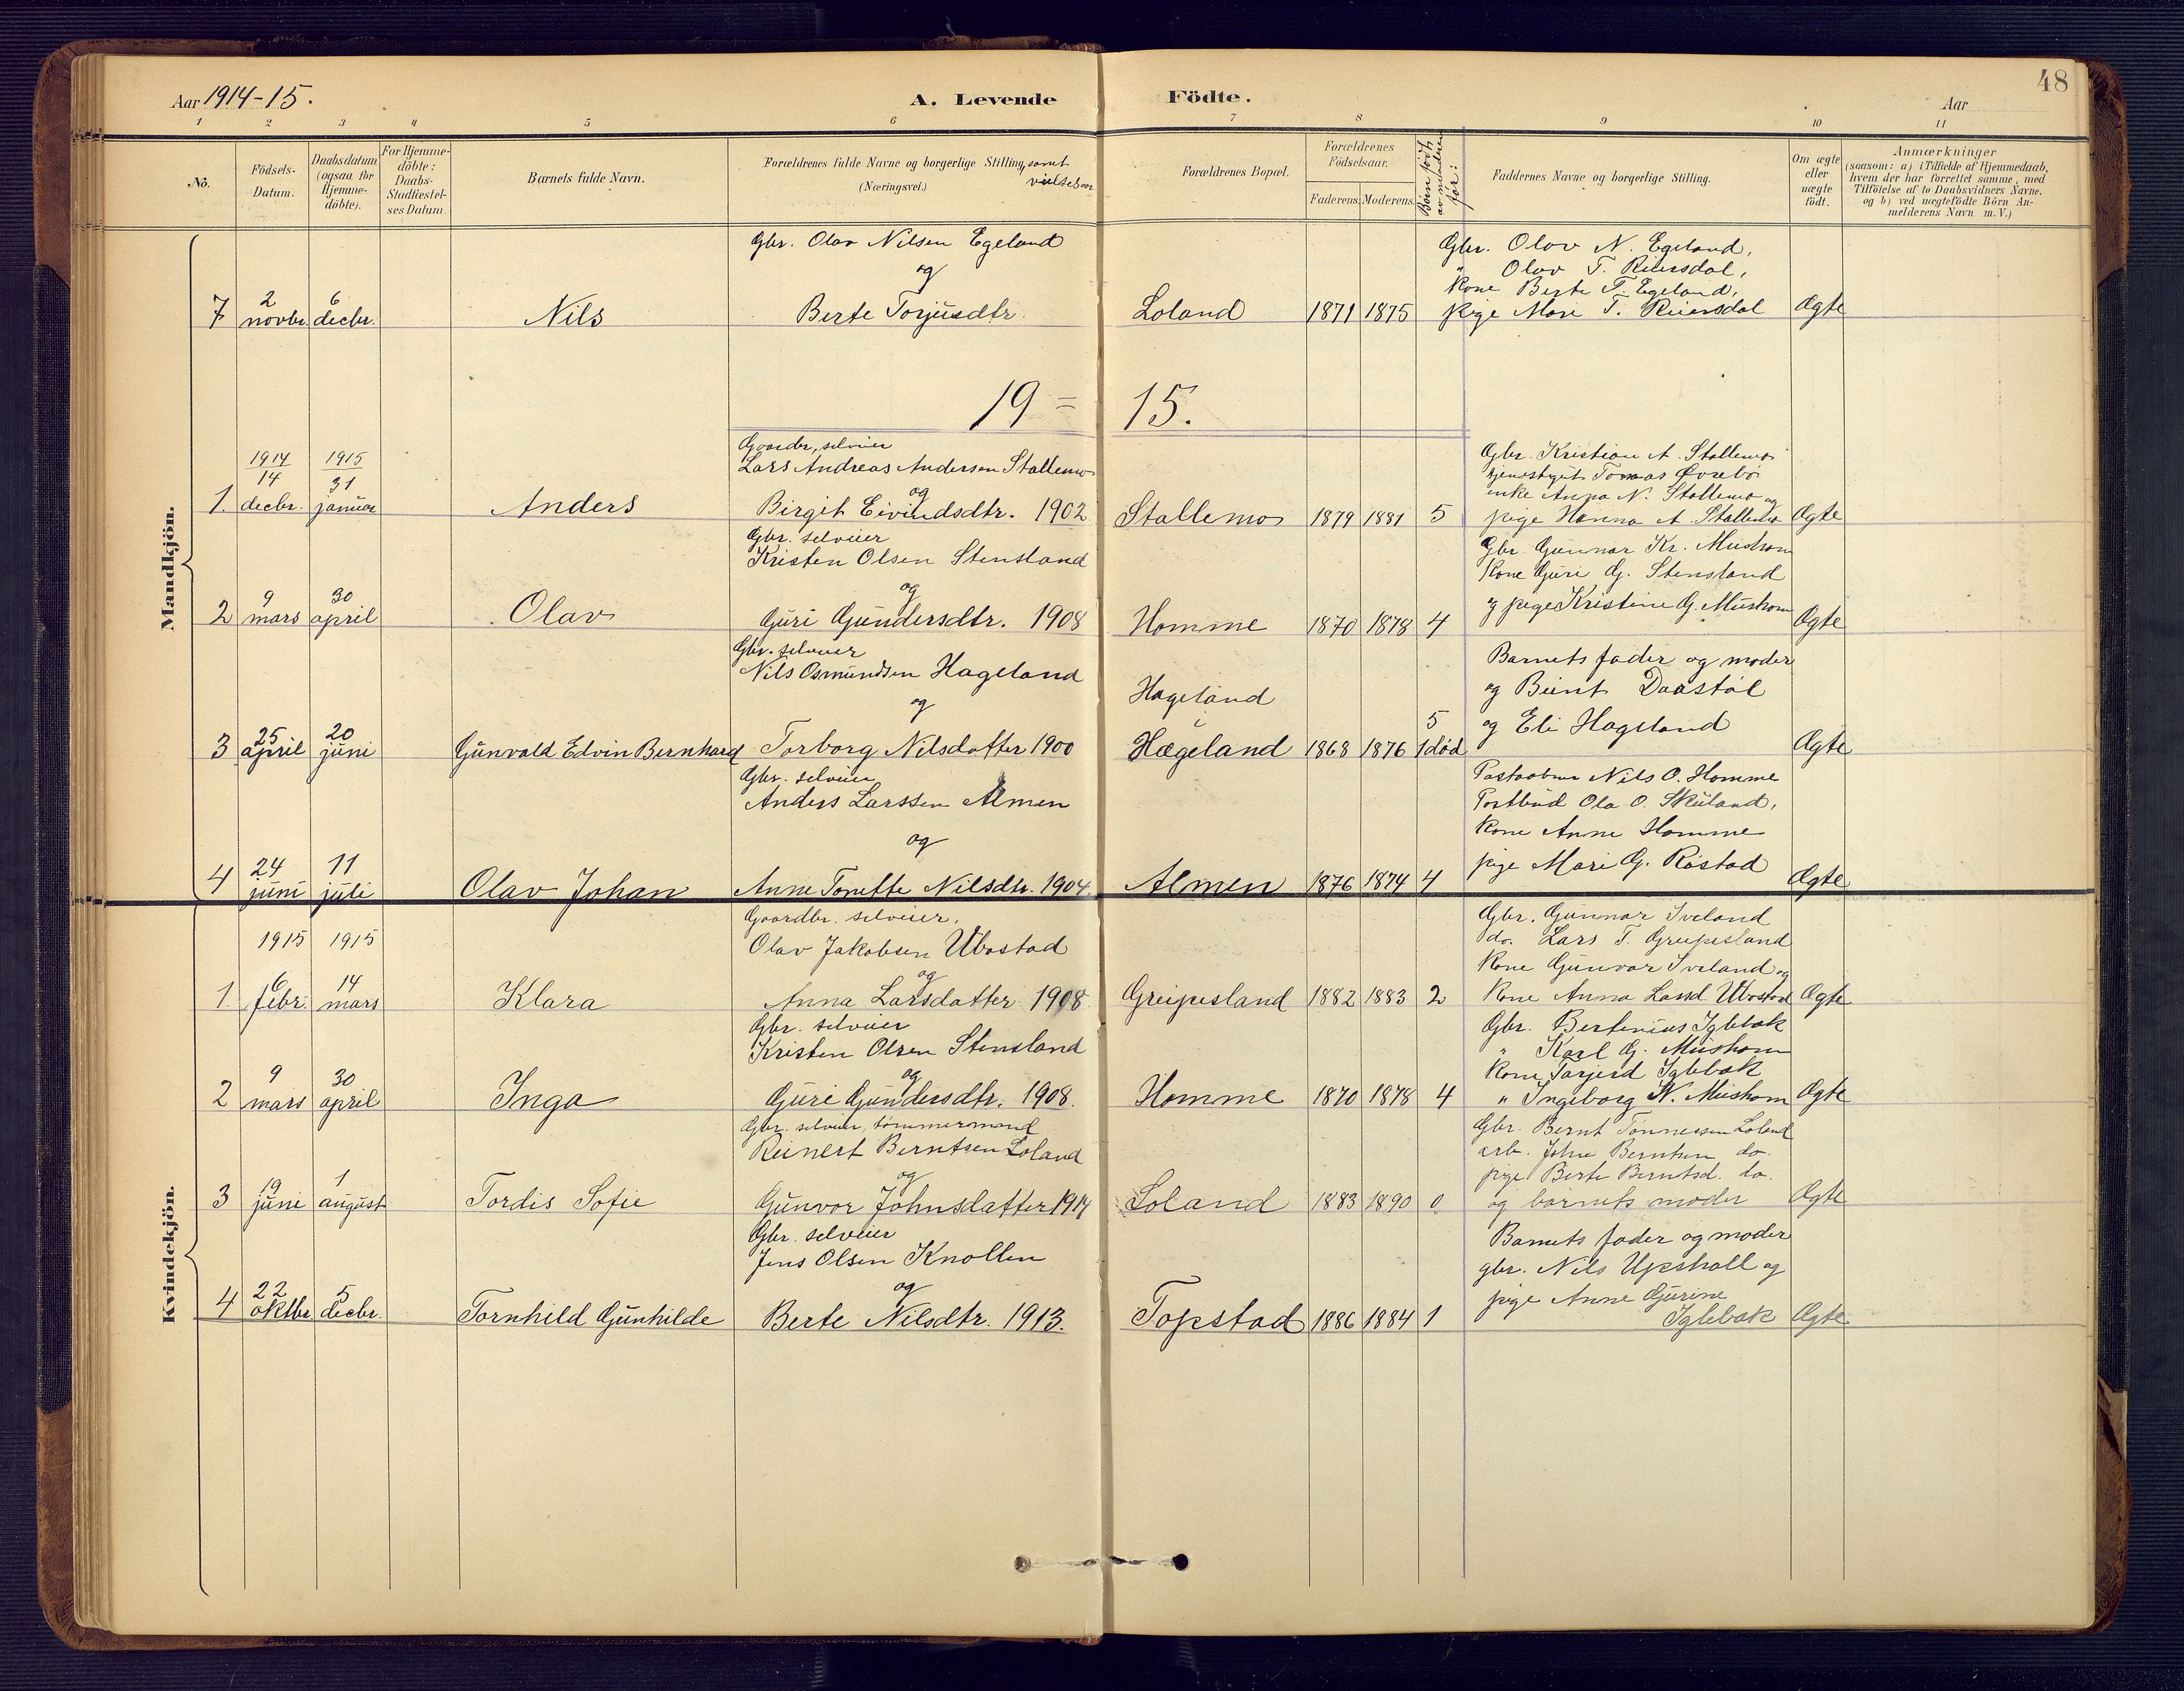 48
Aar 1914-15.
A. Levende
Födte.
Aar
1 2 3 4 5 6 7 8 9 10 11
No.
Födsels-Datum.
Daabsdatum (ogsaa for Hjemme-döbte).
For Hjemme-döbte: Daabs-Stadfæstel-ses Datum.
Barnets fulde Navn.
Forældrenes fulde Navne og borgerlige Stilling, samt vielsesaar
(Næringsvei.)
Forældrenes Bopæl.
Forældrenes Födselsaar.
Faderens. Moderens.
Börn født av moderen før:
Faddernes Navne og borgerlige Stilling.
Om ægte eller uægte födt.
Anmærkninger
(saasom: a) i Tilfælde af Hjemmedaab, hvem der har forrettet samme, med Tilföielse af to Daabsvidners Navne, og b) ved uægtefödte Börn An-melderens Navn m. V.)
Mandkjön.
Gbr. Olav Nilsen Egeland
og
7 2 novbr. 6 decbr. Nils Berte Torjusdtr. Loland 1871 1875
Gbr. Olav N. Egeland,
" Olav T. Reiersdal,
Kone Berte T. Egeland,
Pige Mari T. Reiersdal Ægte
19 = 15.
1914 1915
Gaardbr, selveier
Lars Andreas Andersen Stallemo
og
1. 14 decbr. 31 januar Anders Birgit Eivindsdtr. 1902 Stallemo 1879 1881 5
Gbr. Kristian A. Stallemo
tjenestegut Tomas Øvrebø
enke Anna N. Stallemo og
pige Hanna A. Stallemo Ægte
Gbr. selveier
Kristen Olsen Stensland
og
2 9 mars 30 april Olav Guri Gundersdtr. 1908 Homme 1870 1878 4
Gbr. Gunnar Kr. Mushom
Kone Guri G. Stensland
og pige Kristine G. Mushom Ægte
Gbr. selveier
Nils Osmundsen Hageland
og
Hageland
3 25 april 20 juni Gunvald Edvin Bernhard Torborg Nilsdatter 1900 Hægeland 1868 1876 5 1 død
Barnets fader og moder
og Beint Daastøl
og Eli Hageland Ægte
Gbr. selveier
Anders Larssen Almen
og
4 24 juni 11 juli Olav Johan Anne Tonette Nilsdtr. 1904. Almen 1876 1874 4
Nils O. Homme
Postbud Ola O. Skuland,
Kone Anne Homme
pige Mari G. Røstad Ægte
Kvindekjön.
1915 1915
Gaardbr. selveier,
Olav Jakobsen Ubostad
og
1. 6 febr. 14 mars Klara Anna Larsdatter 1908. Greipesland 1882 1883 2
Gbr. Gunnar Iveland
do. Lars T. Greipesland
Kone Gunvor Iveland og
Kone Anna Larsd. Ubostad Ægte
Gbr. selveier
Kristen Olsen Stensland
og
2 9 mars 30 april Inga Guri Gundersdtr. 1908. Homme 1870 1878 4
Gbr. Bertenius Iglebæk
" Karl G. Mushom
Kone Torjerd Iglebæk
" Ingeborg K. Mushom Ægte
Gbr. selveier, tømmermand
Reinert Berntsen Loland
og
3 19 juni 1 august Tordis Sofie Gunvor Johnsdatter 1914 Loland 1883 1890 0
Gbr. Bernt Tønnessen Loland
arb. John Berntsen do.
pige Berte Berntsd. do.
og barnets moder Ægte
Gbr. selveier
Jens Olsen Knollen
og
4 22 oktbr 5 decbr. Tornhild Gunhilde Berte Nilsdtr. 1913. Topstad 1886 1884 1
Barnets fader og moder
gbr. Nils Upshall og
pige Anne Gurine
Iglebæk Ægte